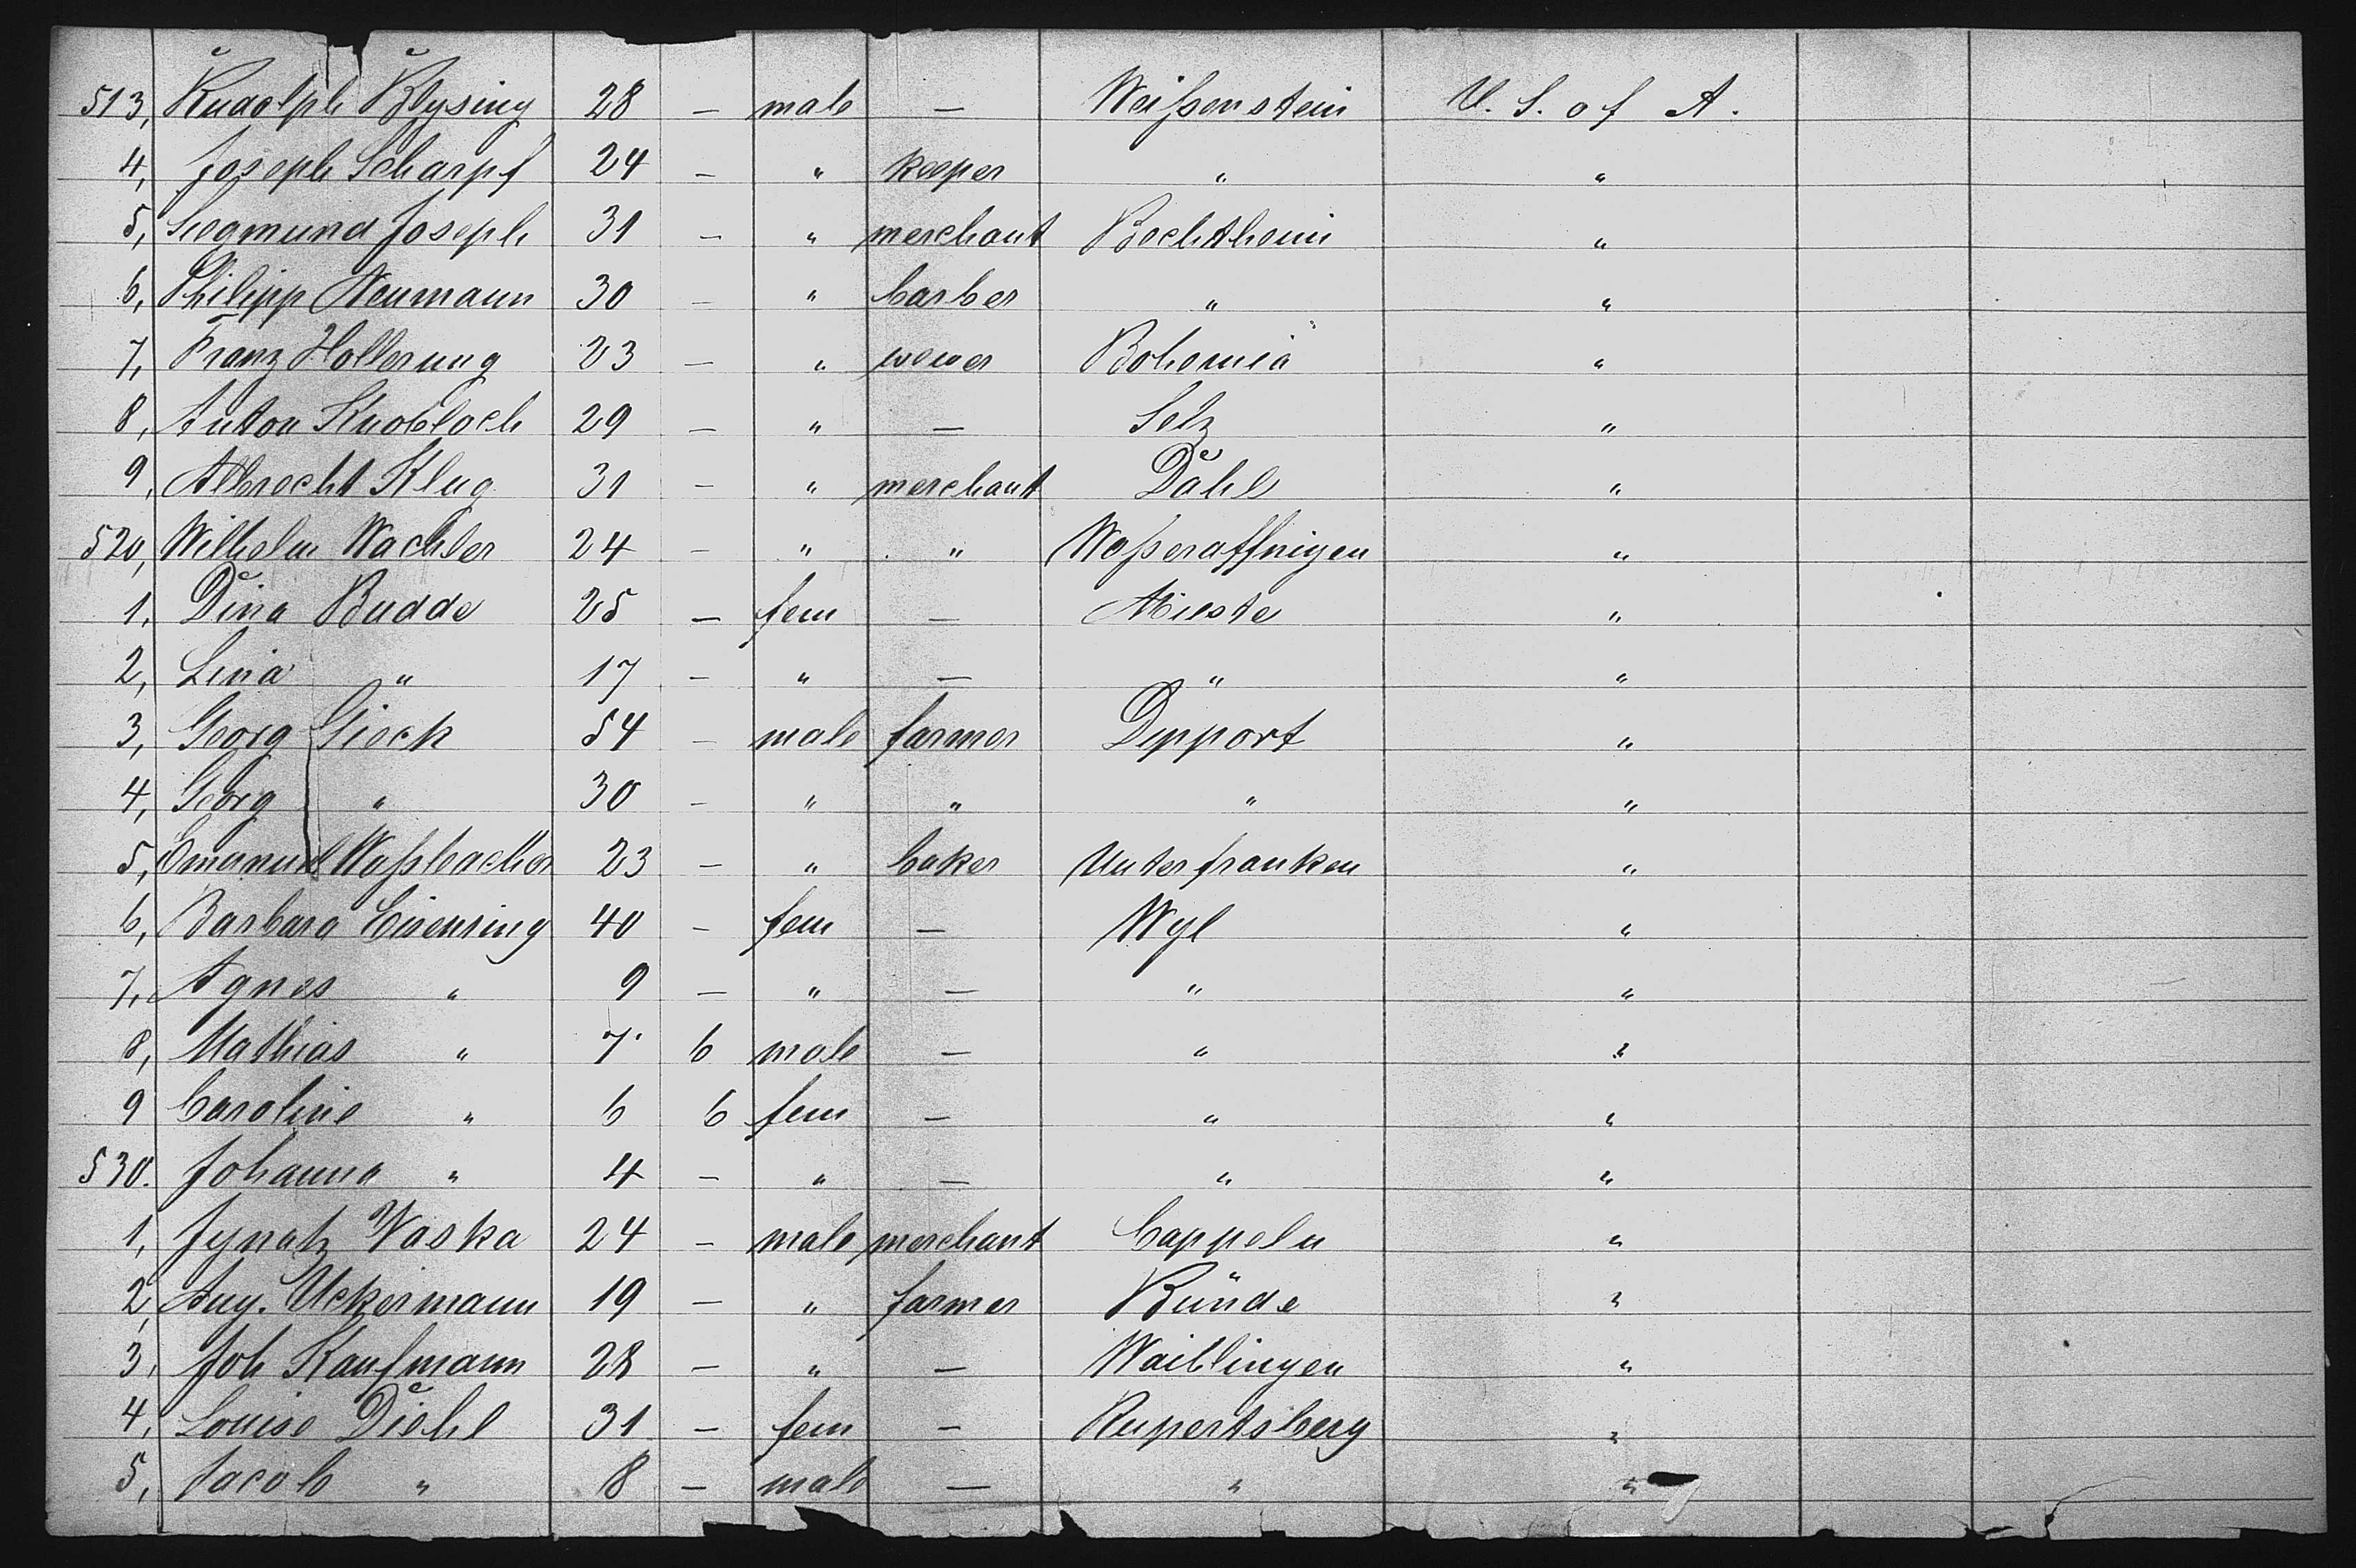 513, Rudolph Blysing 28 – male – Weißenstein U. S. of A.
4, Joseph Scharpf 24 – " keeper " "
5, Siegmund Joseph 31 – " merchant Bechtheim "
6, Philipp Neumann 30 – " barber " "
7, Franz Hollerung 23 – " wewer Bohemia "
8, Anton Knobloch 29 – " – Selz "
9, Albrecht Klug 31 – " merchant Dahle "
520, Wilhelm Wachler 24 – " " Waßeraffingen "
1, Dina Budde 25 – fem – Mieste "
2, Lina " 17 – " – " "
3, Georg Gieck 54 – male farmer Dypport "
4, Georg " 30 – " " " "
5, Emanuel Waßbacher 23 – " baker Unterfranken "
6, Barbara Eisenring 40 – fem – Wyl "
7, Agnes " 9 – " – " "
8, Mathias " 7 6 male – " "
9 Caroline " 6 6 fem – " "
530. Johanna " 4 – " – " "
1, Jgnatz Waska 24 – male merchant Cappeln "
2, Aug. Uckermann 19 – " farmer Bünde "
3, Joh Kaufmann 28 – " – Waiblingen "
4, Louise Diehl 31 – fem – Rupertsberg "
5, Jacob " 8 – male – " "